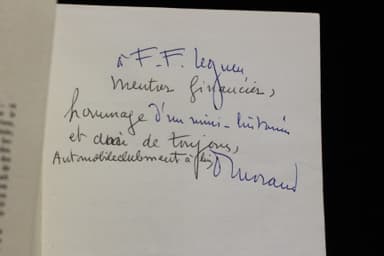 à F.-F. Legueu
mentor financier,
hommage d'un mini-
et de toujours,
Automobileclubment à lui,
Morand